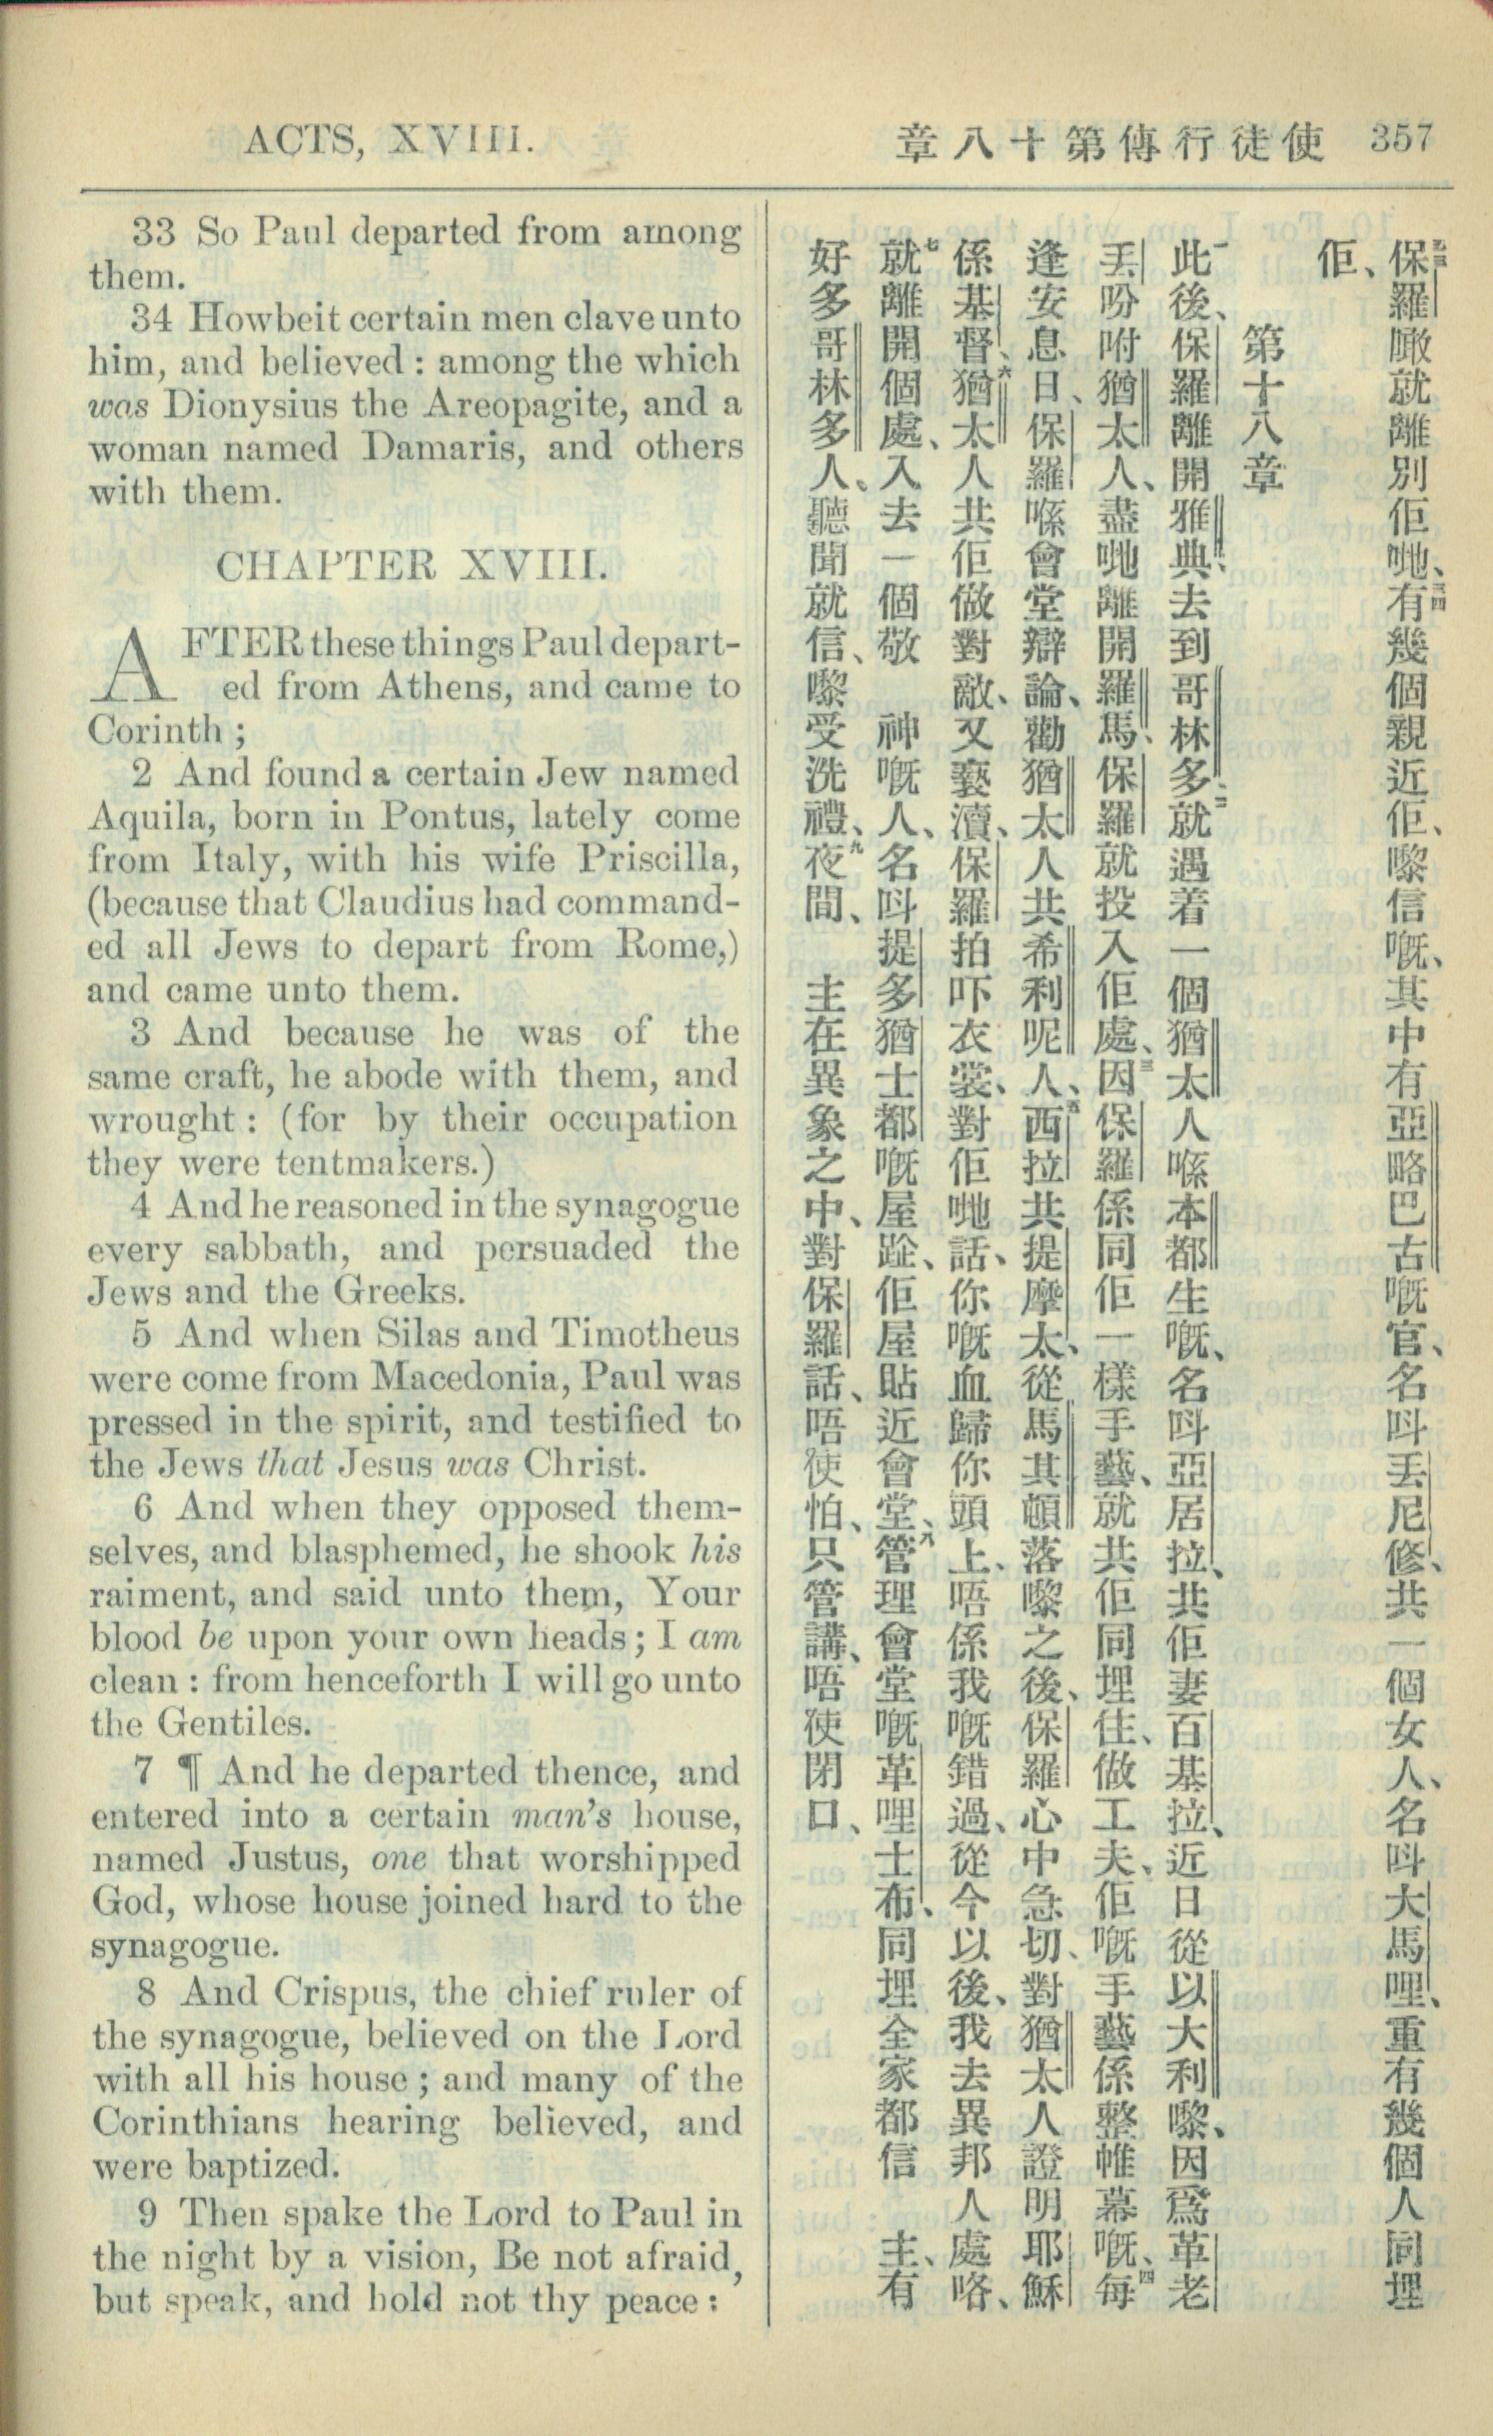 ACTS, XVIII.
使徒行傳第十八章 357
33 So Paul departed from among
them.
34 Howbeit certain men clave unto
him, and believed : among the which
was Dionysius the Areopagite, and a
woman named Damaris, and others
with them.
CHAPTER XVIII.
AFTER these things Paul depart-
ed from Athens, and came to
Corinth ;
2 And found a certain Jew named
Aquila, born in Pontus, lately come
from Italy, with his wife Priscilla,
(because that Claudius had command-
ed all Jews to depart from Rome,)
and came unto them.
3 And because he was of the
same craft, he abode with them, and
wrought : (for by their occupation
they were tentmakers.)
4 And he reasoned in the synagogue
every sabbath, and persuaded the
Jews and the Greeks.
5 And when Silas and Timotheus
were come from Macedonia, Paul was
pressed in the spirit, and testified to
the Jews that Jesus was Christ.
6 And when they opposed them-
selves, and blasphemed, he shook his
raiment, and said unto them, Your
blood be upon your own heads ; I am
clean : from henceforth I will go unto
the Gentiles.
7 ¶ And he departed thence, and
entered into a certain man's house,
named Justus, one that worshipped
God, whose house joined hard to the
synagogue.
8 And Crispus, the chief ruler of
the synagogue, believed on the Lord
with all his house ; and many of the
Corinthians hearing believed, and
were baptized.
9 Then spake the Lord to Paul in
the night by a vision, Be not afraid,
but speak, and hold not thy peace :
三三保羅噉就離別佢哋、三四有幾個親近佢、嚟信嘅、其中有亞略巴古嘅官、名呌丟尼修、共一個女人、名呌大馬哩、重有幾個人同埋
佢、
第十八章
一此後、保羅離開雅典、去到哥林多、二就遇着一個猶太人喺本都生嘅、名呌亞居拉、共佢妻百基拉、近日從以大利嚟、因爲革老
丟吩咐猶太人、盡哋離開羅馬、保羅就投入佢處、三因保羅係同佢一樣手藝、就共佢同埋住、做工夫、佢嘅手藝係整帷幕嘅、四每
逢安息日、保羅喺會堂辯論、勸猶太人共希利呢人、五西拉共提摩太、從馬其頓落嚟之後、保羅心中急切、對猶太人證明耶穌
係基督、六猶太人共佢做對敵、又褻瀆、保羅拍吓衣裳、對佢哋話、你嘅血歸你頭上、唔係我嘅錯過、從今以後、我去異邦人處咯、
七就離開個處、入去一個敬 神嘅人、名呌提多猶士都嘅屋跐、佢屋貼近會堂、八管理會堂嘅革哩士布、同埋全家都信 主、有
好多哥林多人、聽聞就信、嚟受洗禮、九夜間、 主在異象之中、對保羅話、唔使怕、只管講、唔使閉口、